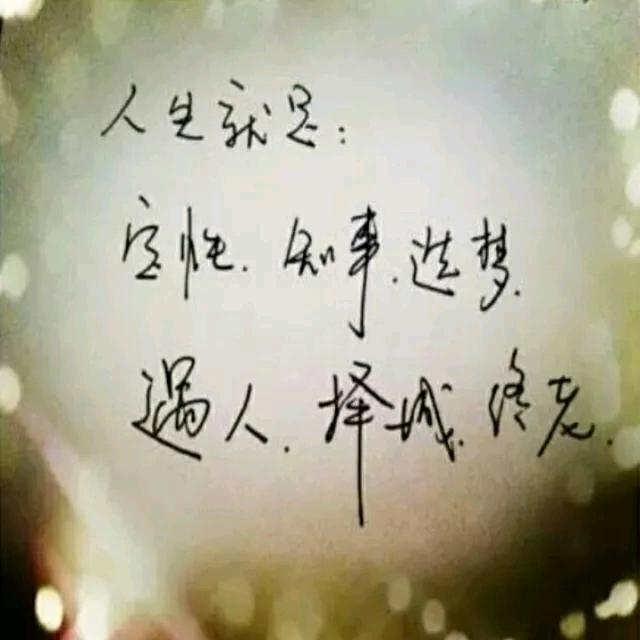 人生就是：
定性.知事.造梦.
遇人.择城.终老.